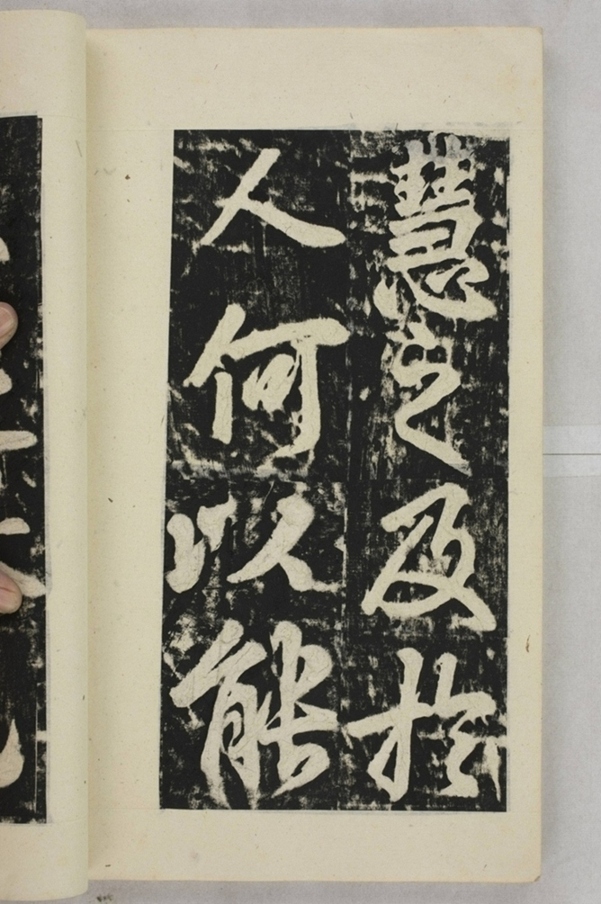 慧之及於
人何以能